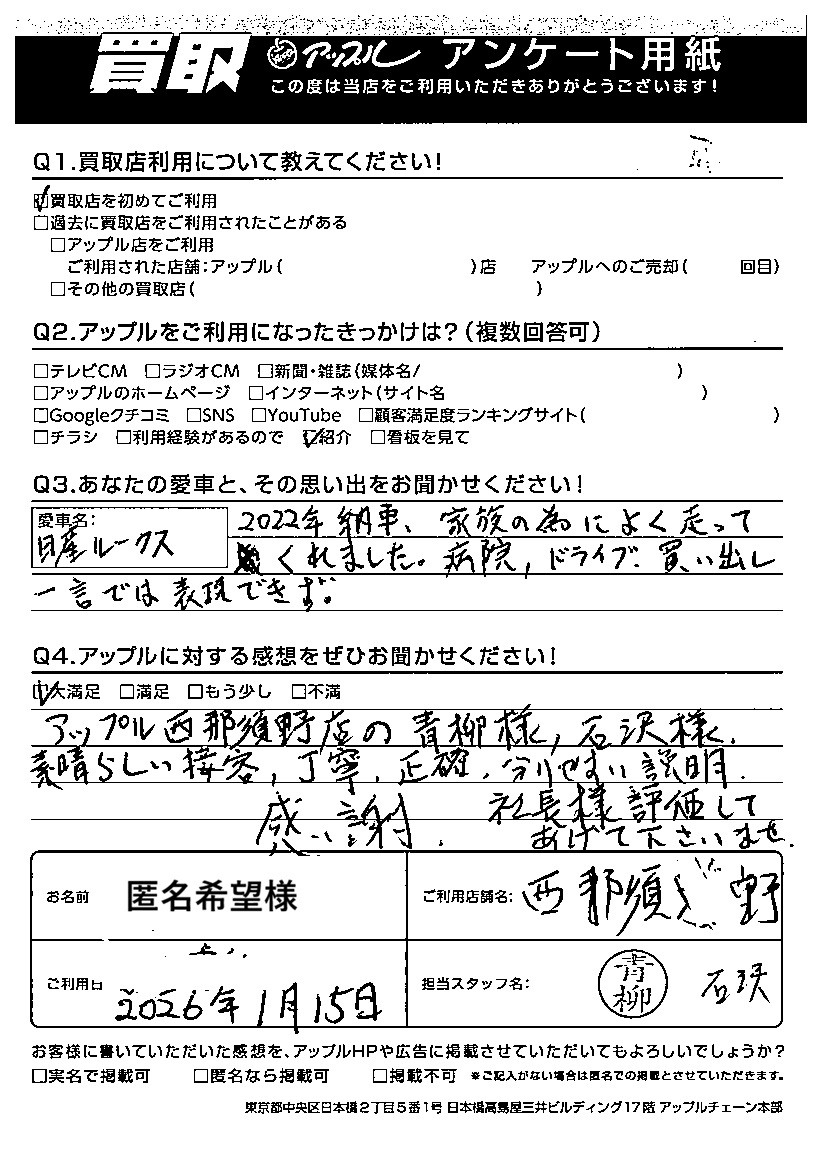 買取 アップル アンケート用紙
この度は当店をご利用いただきありがとうございます!
Q1.買取店利用について教えてください!
☑買取店を初めてご利用
□過去に買取店をご利用されたことがある
□アップル店をご利用
ご利用された店舗:アップル( )店 アップルへのご売却( 回目)
□その他の買取店( )
Q2.アップルをご利用になったきっかけは?(複数回答可)
□テレビCM □ラジオCM □新聞・雑誌(媒体名/ )
□アップルのホームページ □インターネット(サイト名 )
□Googleクチコミ □SNS □YouTube □顧客満足度ランキングサイト( )
□チラシ □利用経験があるので ☑紹介 □看板を見て
Q3.あなたの愛車と、その思い出をお聞かせください!
愛車名:
日産ルークス
2022年納車、家族の為によく走って
くれました。病院,ドライブ.買い出し
一言では表現できず。
Q4.アップルに対する感想をぜひお聞かせください!
☑大満足 □満足 □もう少し □不満
アップル西那須野店の青柳様,石沢様.
素晴らしい接客,丁寧.正確.分りやすい説明.
感謝. 社長様評価して
あげて下さいませ.
お名前 匿名希望様
ご利用店舗名: 西那須 野
ご利用日 2026年1月15日
担当スタッフ名: 青柳 石沢
お客様に書いていただいた感想を、アップルHPや広告に掲載させていただいてもよろしいでしょうか?
□実名で掲載可 □匿名なら掲載可 □掲載不可 ※ご記入がない場合は匿名での掲載とさせていただきます。
東京都中央区日本橋2丁目5番1号 日本橋髙島屋三井ビルディング17階 アップルチェーン本部